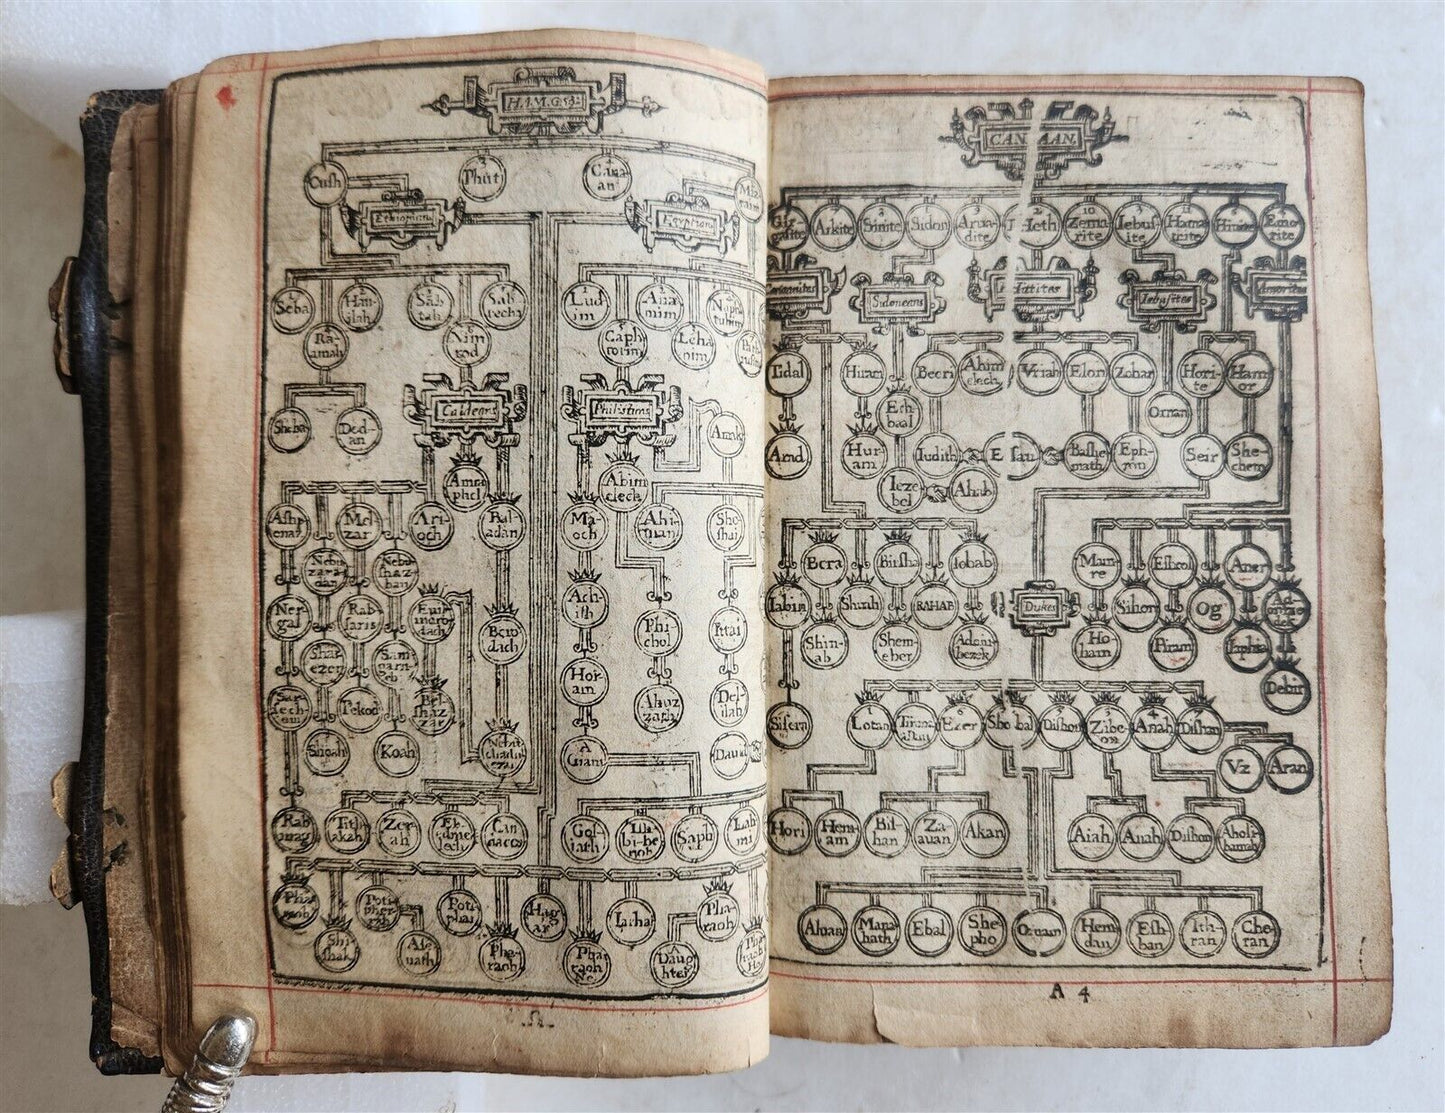 HAM. GS.
Cush
Phut
Cana
an
Ethiopians
Egyptians
Seba
Havi
ilah
Sab
tah
Sab
techa
Lud
im
Ana
mim
Ra-
amah
Nim
rod
Caph
torim
Leha
bim
Caldeans
Philistims
Sheba
Ded-
an
Amra
phel
Abim
elech
Ashp
enaz
Mel-
zar
Ari-
och
Bal-
adan
Ma-
och
Ahi-
man
She-
shai
Nebu
zara-
dan
Nebu
shaz
ban
Ner-
gal
Rab-
saris
Evil
merod
dach
Bero
dach
Ach-
ish
Phi
chol
Ittai
Shar
ezer
Sam
garn-
eb
Hor-
am
Sar-
sech-
em
Pekod
Bel-
shaz-
zar
Ahuz
zath
Del-
ilah
Shoah
Koah
Nebu
chadn
ezar
A
Giant
David
Rab
mag
Tirh-
akah
Zer
ah
Ebed
mel
lech
Can
daces
Gol-
iath
Ish-
bi-be
nob
Saph
Lah
mi
Pha-
raoh
Poti-
pher
rah
Poti
phar
Hag-
ar
Iarha
Pha-
raoh
Shi-
shak
Ase-
nath
Pha-
raoh
Pha
raoh
Nc
A
Daug
hter
CANAAN.
Gir
gasite
Arkite
Sinite
Sidon
Arua-
dite
Heth
Zema
rite
Iebus-
ite
Hama
trite
Hiuite
Emo-
rite
Sidoneans
Hittites
Iebusites
Amorites
Tidal
Hiram
Beeri
Ahim
elech
Vriah
Elon
Zohar
Hori-
te
Ham-
or
Eth-
baal
Ornan
Arnd
Hur-
am
Iudith
Esau
Bashe
math
Eph-
ron
Seir
She-
chem
Ieze
bel
Ahab
Bera
Birsha
Iobab
Mam-
re
Eshcol
Aner
Iabin
Shinib
RAHAB
Dukes
Sihon
Og
Ad-
onize
dek
Shin-
ab
Shem-
eber
Adoni-
bezek
Ho-
ham
Piram
Iaphia
Debir
Sisera
Lotan
Timna
Ezer
Shobal
Dishon
Zibe-
on
Anah
Dishan
Vz
Aran
Hori
Hem-
am
Bil-
han
Za-
auan
Akan
Aiah
Anah
Dishon
Aholi-
bamah
Aluan
Mana
hath
Ebal
She-
pho
Onam
Hem-
dan
Esh-
ban
Ith-
ran
Che-
ran
A 4